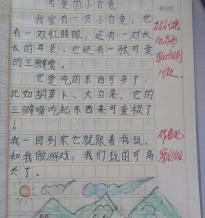 可爱的小白兔
我家有一只小白兔,它
有一双红眼睛,还有一对长
长的耳朵,它还有一张可爱
的三瓣嘴。
它爱吃的东西可多了,
比如胡萝卜、大白菜,它的
三瓣嘴吃起东西来可爱极了
!
我一回到家它就跟着我玩,
和我做游戏,我们玩的可高
兴了。